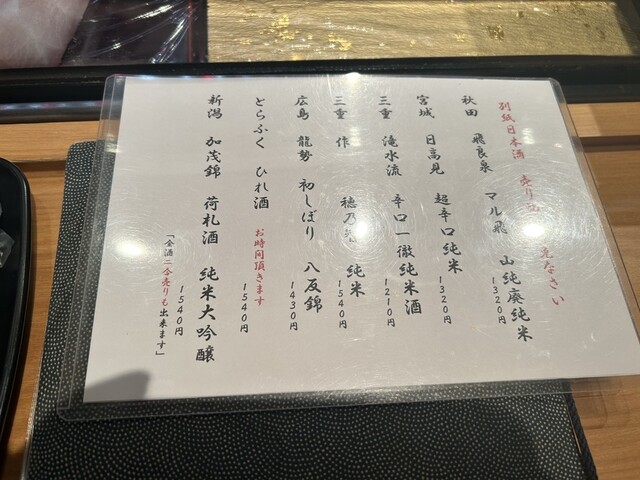 別紙日本酒 売りも
秋田 飛良泉 マル飛 山純廃純米
1320円
宮城 日高見 超辛口純米
1320円
三重 滝水流 辛口一徹純米酒
1210円
三重 作 穂乃智 純米
1540円
広島 龍勢 初しぼり 八反錦
1430円
とらふく ひれ酒 お時間頂きます
1540円
新潟 加茂錦 荷札酒 純米大吟醸
1540円
「全酒二合売りも出来ます」